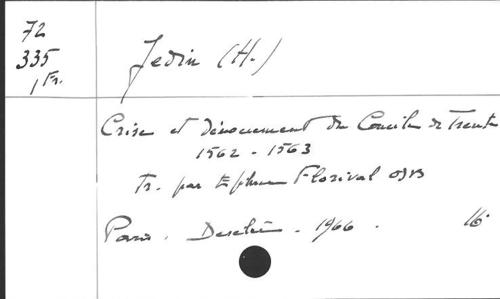 72
335
1 Fr.
Jedin (H.)
Crise et dénouement du Concile de Trente
1562 - 1563
Tr. par Ephrem Florival OSB
Paris. Desclée. 1966. 16°